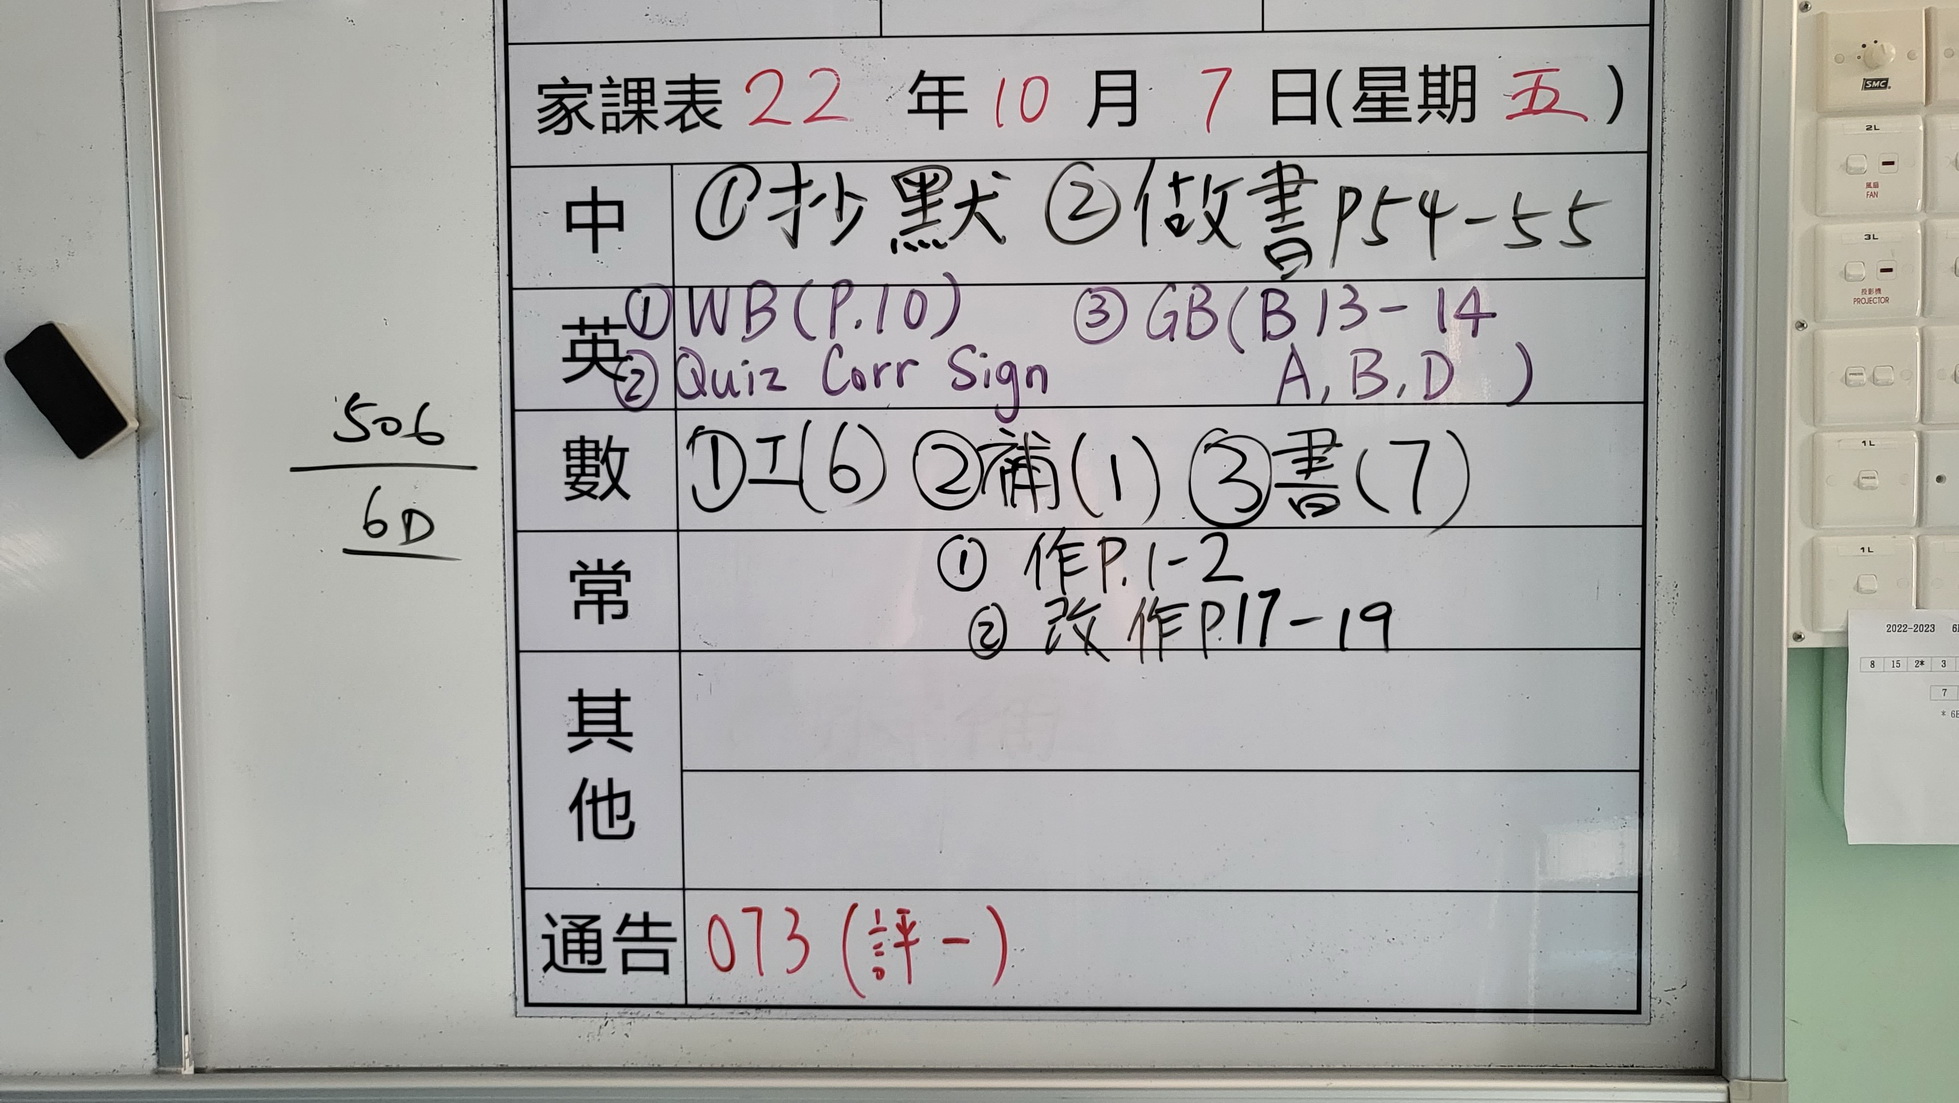 家課表 22 年 10 月 7 日(星期 五)
中 ①抄默 ②做書P54-55
英 ①WB(P.10) ③GB(B13-14
②Quiz Corr Sign A,B,D)
數 ①工(6) ②補(1) ③書(7)
常 ① 作P.1-2
② 改作P.17-19
其他
通告 073(評一)
506
6D
SMC
2L
風扇
FAN
3L
投影機
PROJECTOR
1L
1L
2022-2023
8 15 2* 3
7